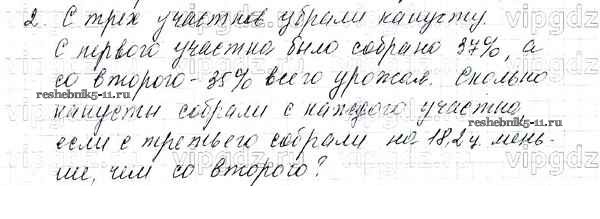 2. С трёх участков убрали капусту.
С первого участка было собрано 37%, а
со второго - 35% всего урожая. Сколько
reshebnik5-11.ru
reshebnik5-11.ru
капусты собрали с каждого участка,
если с третьего собрали на 18,2 ц. мень-
ше, чем со второго?
vipgdz
vipgdz
vipgdz
vipgdz